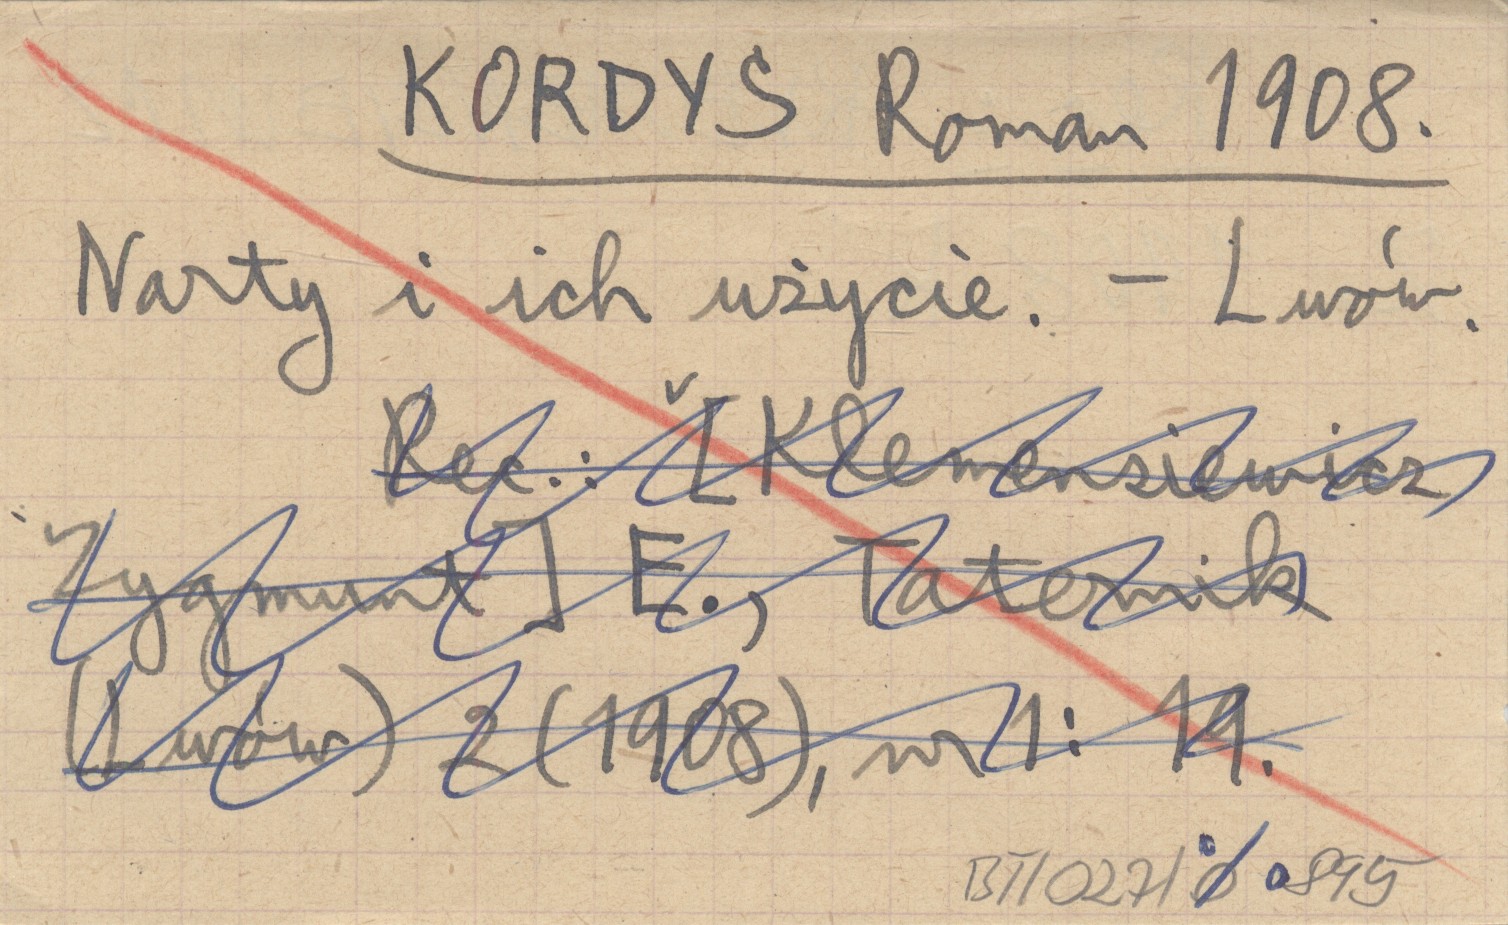 KORDYS Roman 1908.
Narty i ich użycie. – Lwów.
Rec.: [Klemensiewicz
Zygmunt] E., Taternik
(Lwów) 2 (1908), nr 1: 19.
BT/027/ 895